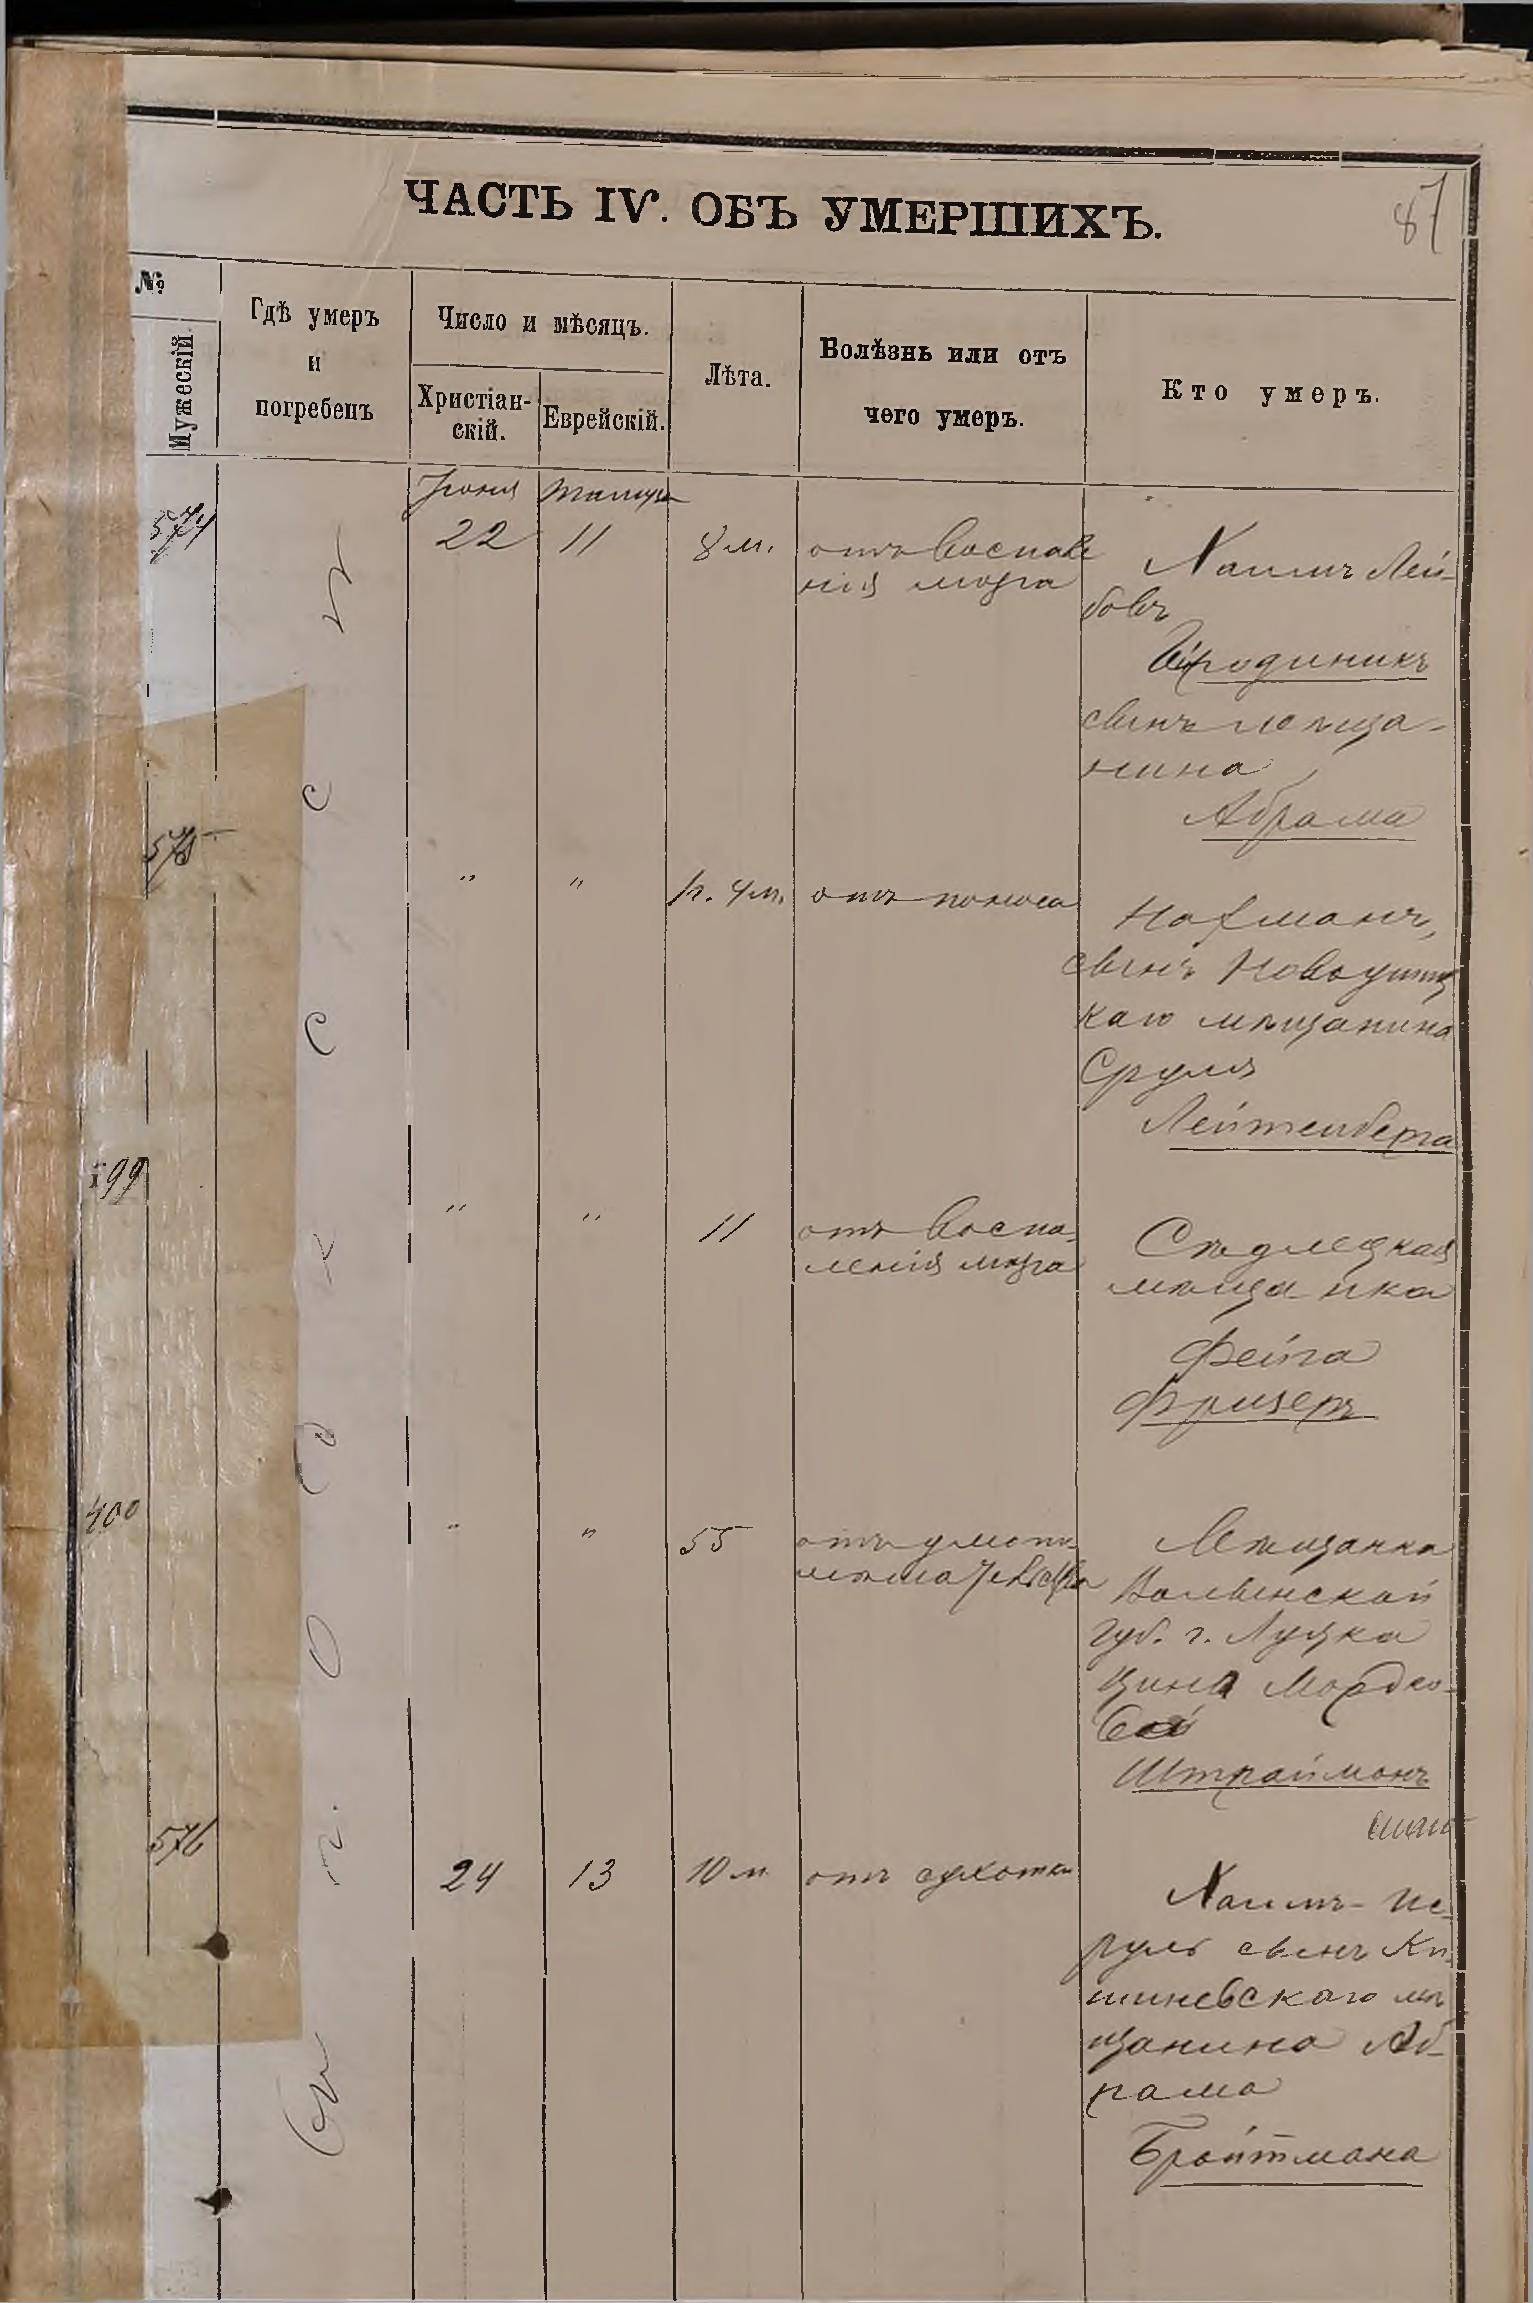 ЧАСТЬ IV. ОБЪ УМЕРШИХЪ.
87
№
Мужескій.
Гдѣ умеръ
и
погребенъ
Число и мѣсяцъ.
Христіан-
скій.
Еврейскій.
Лѣта.
Болѣзнь или отъ
чего умеръ.
Кто умеръ.
Іюня
574
22
11
8 м.
отъ воспале
нія мозга
Хаимъ Лей-
бовъ
сынъ мѣща-
нина
Абрама
575
"
"
1 г. 4 м.
отъ поноса
Нахманъ,
сынъ Новоушиц
каго мѣщанина
Сруля
Лейтенберга
399
"
"
11
отъ воспа-
ленія мозга
Сѣдлецкая
мѣщанка
Фейга
Фризеръ
400
"
"
55
Мѣщанка
Волынской
губ. г. Луцка
Цина Мордко-
вой
Штраймонъ
576
24
13
10 м
отъ сухотки
Хаимъ-Ис-
руль сынъ Ки-
шиневскаго мѣ
щанина Аб-
рама
Бройтмана
Въ г. Одессѣ